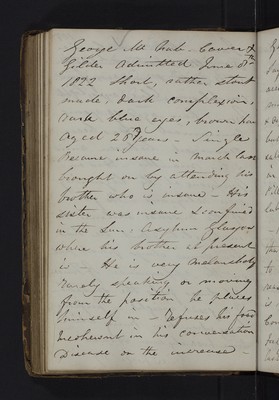 George Mc Nab - Carver &
Gilder Admitted June 8th
1822 Short, rather stout
made, dark complexion,
dark blue eyes, brown hair
Aged 26 Years - Single
Became insane in March last
brought on by attending his
brother who is insane - His
sister was insane & confined
in the Lun. Asylum Glasgow
where his brother at present
is - He is very melancholy
rarely speaking or moving
from the position he places
himself in - Refuses his food
Incoherent in his conversation
Disease on the increase -